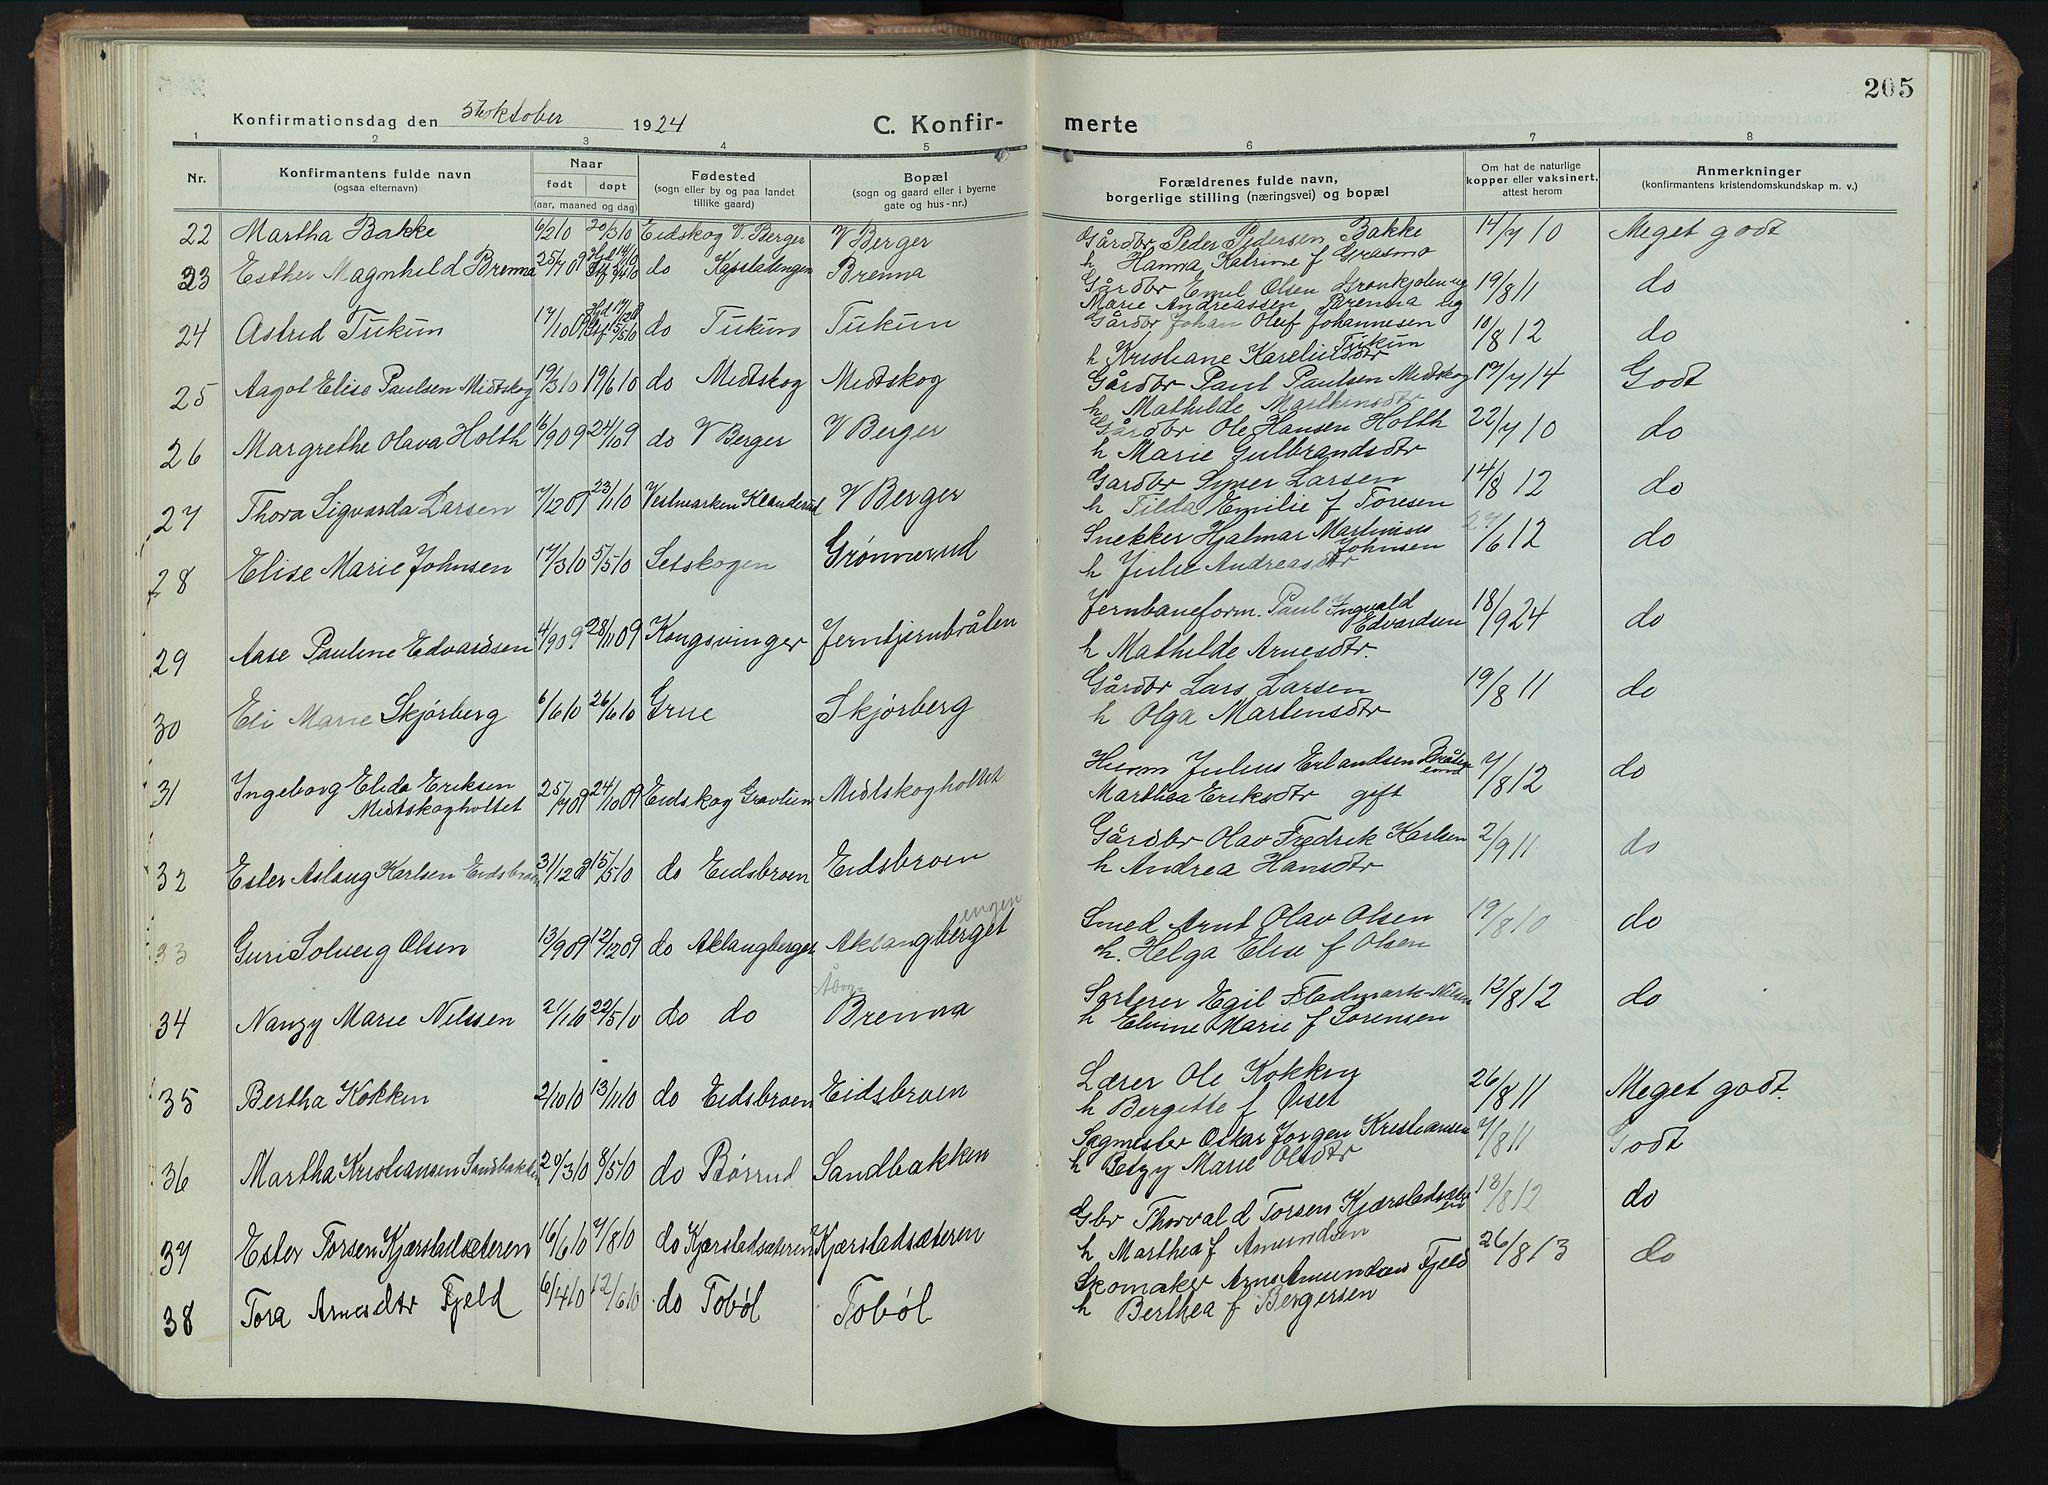 205
Konfirmationsdag den 5te oktober 1924 C. Konfir- merte
1 2 3 4 5 6 7 8
Nr. Konfirmantens fulde navn (ogsaa efternavn) Naar født døpt (aar, maaned og dag) Fødested (sogn eller by og paa landet tillike gaard) Bopæl (sogn og gaard eller i byerne gate og hus-nr.) Forældrenes fulde navn, borgerlige stilling (næringsvei) og bopæl Om hat de naturlige kopper eller vaksinert, attest herom Anmerkninger (konfirmantens kristendomskundskap m. v.)
22 Martha Bakke 6/2 10 20/3 10 Eidskog V. Berger V Berger Gårdbr Peder Pedersen Bakke 14/7 10 Meget godt
h Hanna Katrine f Grasmo
23 Esther Magnhild Brenna 25/7 09 do Brenna Gårdbr Emil Olsen 19/8 11 do
Marie Andreassen Brenna
24 Astrid Tukun 17/10 09 do Tukun Tukun Gårdbr Johan Oluf Johannesen 10/8 12 do
h Kristiane
25 Aagot Elise Paulsen Midtskog 19/3 10 19/6 10 do Midtskog Midtskog Gårdbr Paul Paulsen Midtskog 17/7 14 Godt
h Mathilde
26 Margrethe Olava Holth 6/9 09 24/10 09 do V Berger V Berger Gårdbr Ole Hansen Holth 22/7 10 do
h Marie Gulbrandsdtr
27 Thora Sigvarda Larsen 7/12 09 23/1 10 Vestmarken V Berger Gårdbr Larsen 14/8 12 do
h Tilda Emilie f Toresen
28 Elise Marie Johnsen 17/3 10 5/5 10 Setskogen Grønnerud Snekker Hjalmar Martinius Johnsen 27/6 12 do
h Julie Andreasdtr
29 Aase Pauline Edvardsen 4/9 09 28/11 09 Kongsvinger Jerntjernbråten Jernbaneform. Paul Ingvald Edvardsen 18/9 24 do
h Mathilde Arnesdtr.
30 Eli Marie Skjørberg 6/6 10 26/6 10 Grue Skjørberg Gårdbr Lars Larsen 19/8 11 do
h Olga Martensdtr
31 Ingeborg Elida Eriksen Midtskogholtet 25/7 09 24/10 09 Eidskog Midtskogholtet Julius Erlandsen 7/8 12 do
Marthea Eriksdtr gift
32 Ester Aslaug Karlsen Eidsbroen 31/12 09 15/5 10 do Eidsbroen Eidsbroen Gårdbr Olav Fredrik Karlsen 2/9 11 do
h Andrea Hansdtr
33 Guri Solveig Olsen 13/9 09 12/12 09 do Aklangberget Aklangberget engen Smed Arnt Olav Olsen 19/8 10 do
h. Helga Elise f Olsen
34 Nanzy Marie Nilssen 2/1 10 22/5 10 do do Brenna Sorterer Egil Fladmark-Nilsen 12/8 12 do
h Elvine Marie f Sørensen
35 Bertha Kokken 2/10 10 13/11 10 do Eidsbroen Eidsbroen Lærer Ole Kokken 26/8 11 Meget godt.
h Bergitte f Øiset
36 Martha Kristiansen Sandbakken 20/3 10 8/5 10 do Børrud Sandbakken Sagmester Oskar Jørgen Kristiansen 7/8 11 Godt
h Betzy Marie Olsdtr
37 Ester Torsen Kjærstadsæteren 16/6 10 7/8 10 do Kjærstadsæteren Kjærstadsæteren Gbr Thorvald Torsen Kjærstadsæteren 12/8 12 do
h Marthea f Amundsen
38 Tora Arnesdtr Fjeld 6/4 10 12/6 10 do Tobøl Tobøl Skomaker Arne Amundsen Fjeld 26/8 13 do
h Berthea f Bergersen